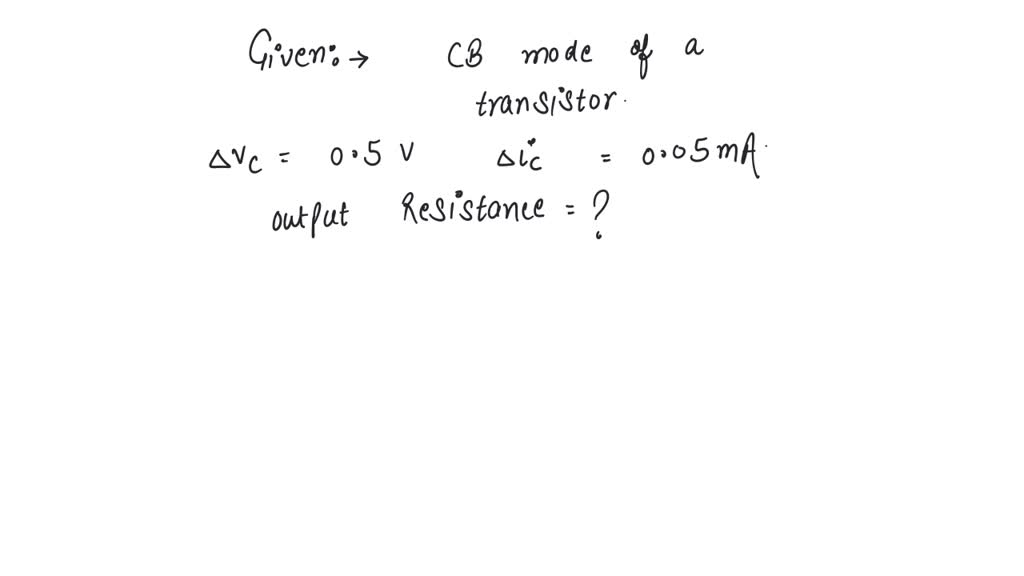 Given:→ CB mode of a
transistor.
ΔVc = 0.5 V Δic = 0.05mA.
output Resistance = ?